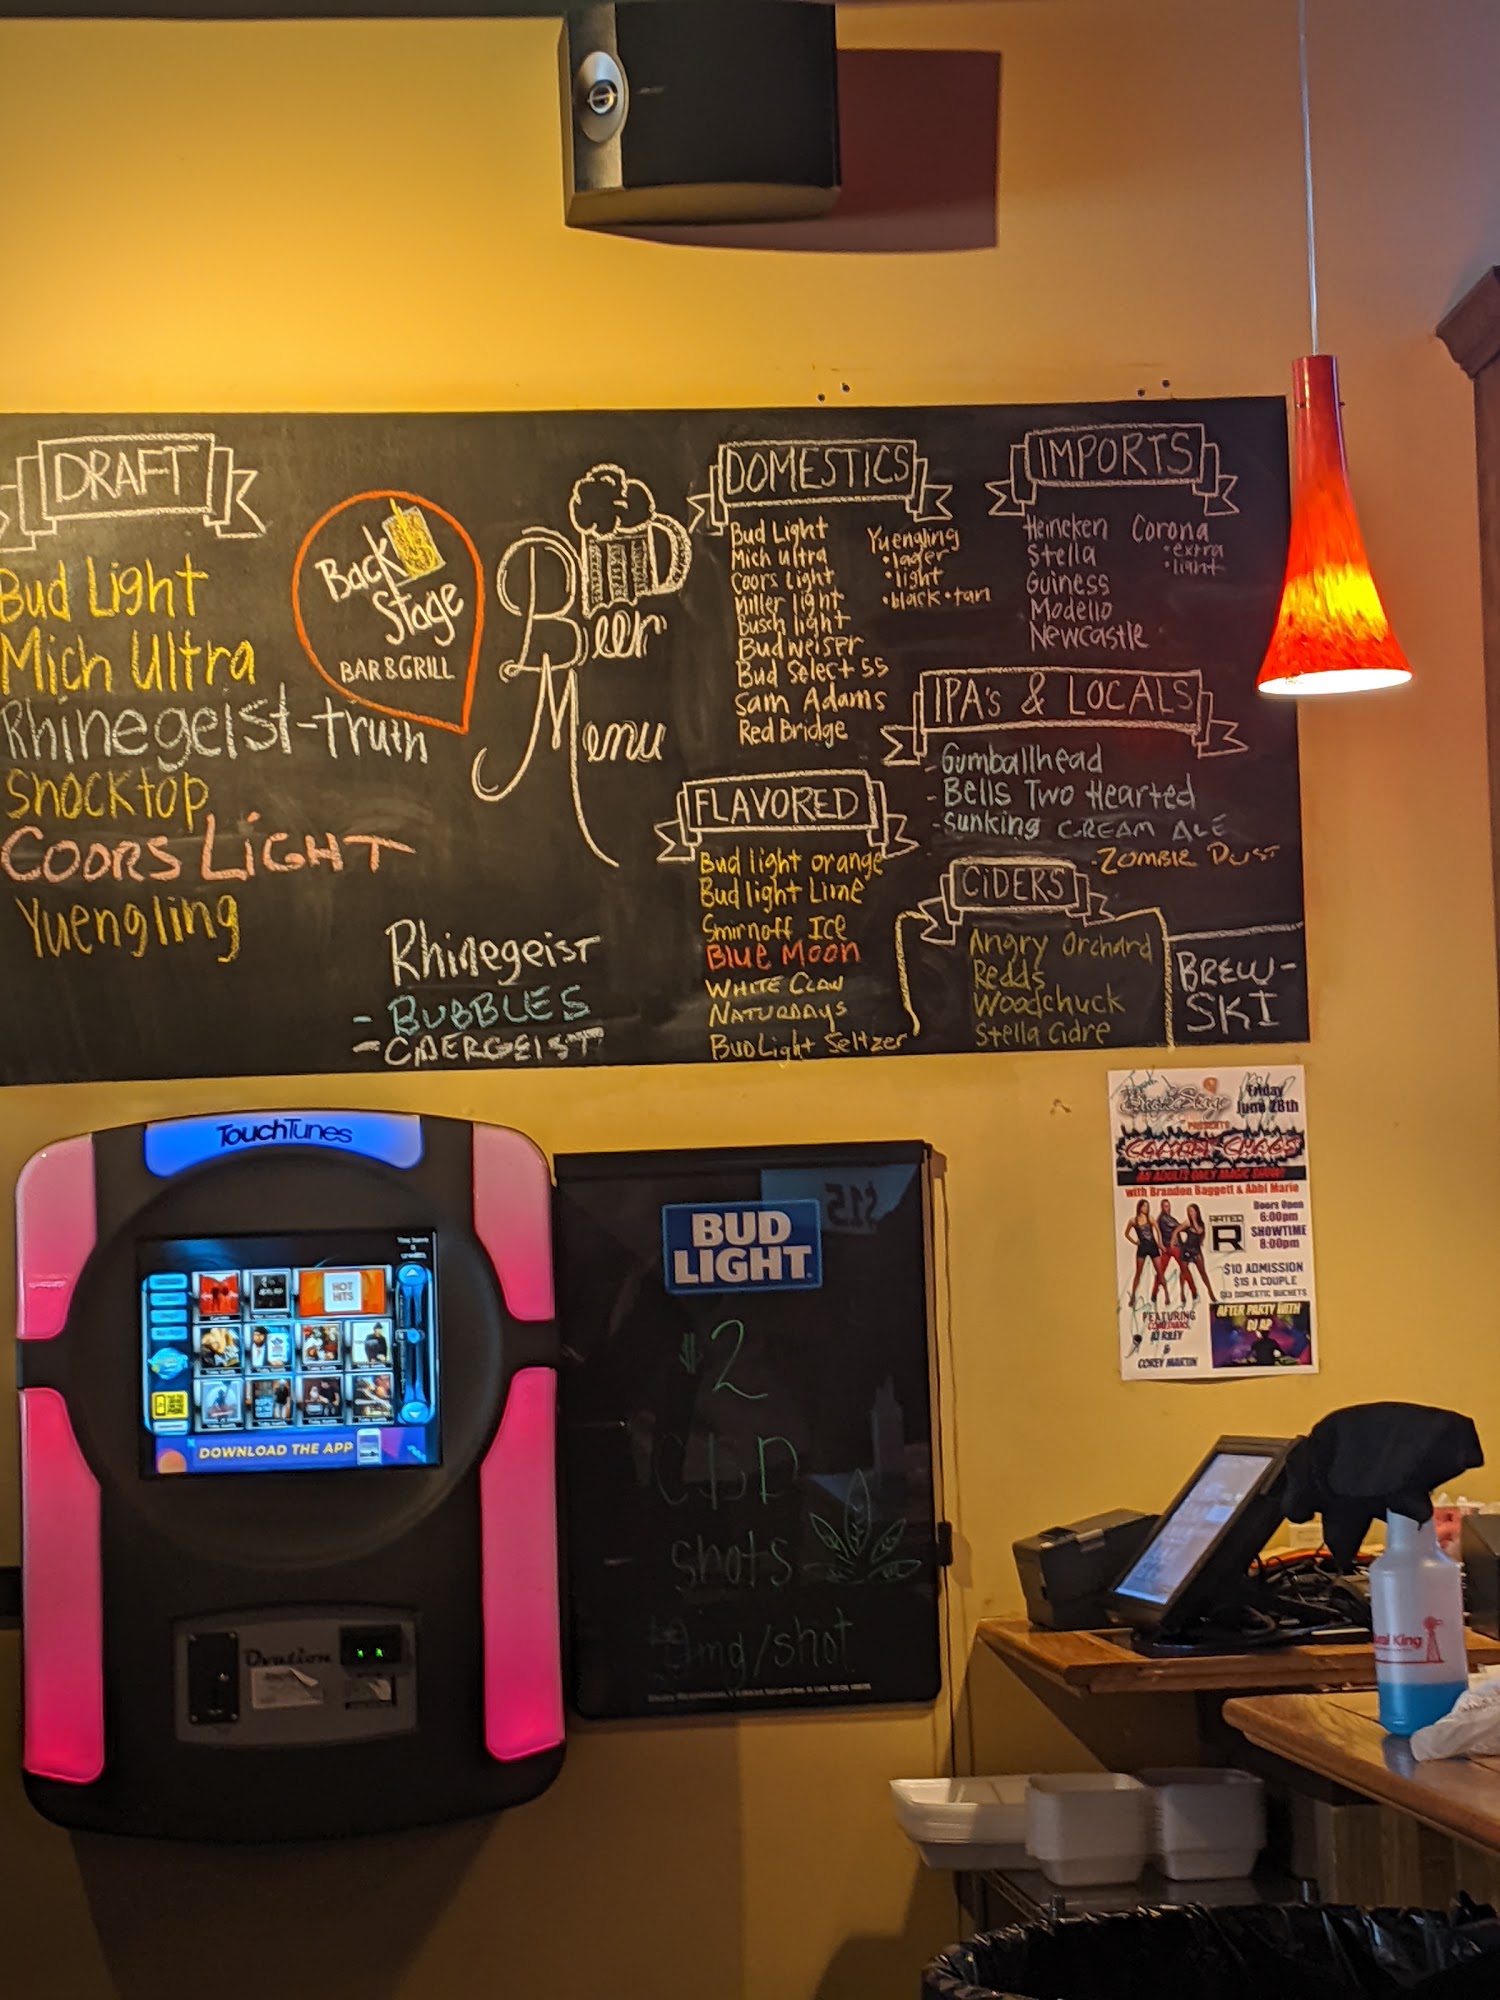 DRAFT
Bud Light
Mich Ultra
Rhinegeist-truth
Shocktop
COORS LIGHT
Yuengling
Back Stage
BAR & GRILL
Beer
Menu
Rhinegeist
- BUBBLES
DOMESTICS
Bud Light
Mich ultra
Coors Light
Miller light
Busch light
Budweiser
Bud Select 55
Sam Adams
Red Bridge
Yuengling
• lager
• light
• black • tan
IMPORTS
Heineken
Stella
Guiness
Modello
Newcastle
Corona
• extra
• light
IPA's & LOCALS
- Gumballhead
- Bells Two Hearted
- Sunking CREAM ALE
- ZOMBIE DUST
FLAVORED
Bud light orange
Bud light Lime
Smirnoff Ice
BLUE MOON
WHITE CLAW
NATURDAYS
Bud Light Seltzer
CIDERS
Angry Orchard
Redds
Woodchuck
Stella Cidre
BREW-
SKI
TouchTunes
HOT
HITS
DOWNLOAD THE APP
Ovation
$15
BUD
LIGHT
$2
CBD
shots
mg/shot
BackStage
Friday
June 28th
PRESENTS
AN ADULTS ONLY MAGIC SHOW!
with Brandon Baggett & Abbi Marie
RATED
R
Doors Open
6:00pm
SHOWTIME
8:00pm
$10 ADMISSION
$15 A COUPLE
$13 DOMESTIC BUCKETS
FEATURING
COMEDIANS,
AJ RILEY
&
COREY MARTIN
AFTER PARTY WITH
DJ AP
King